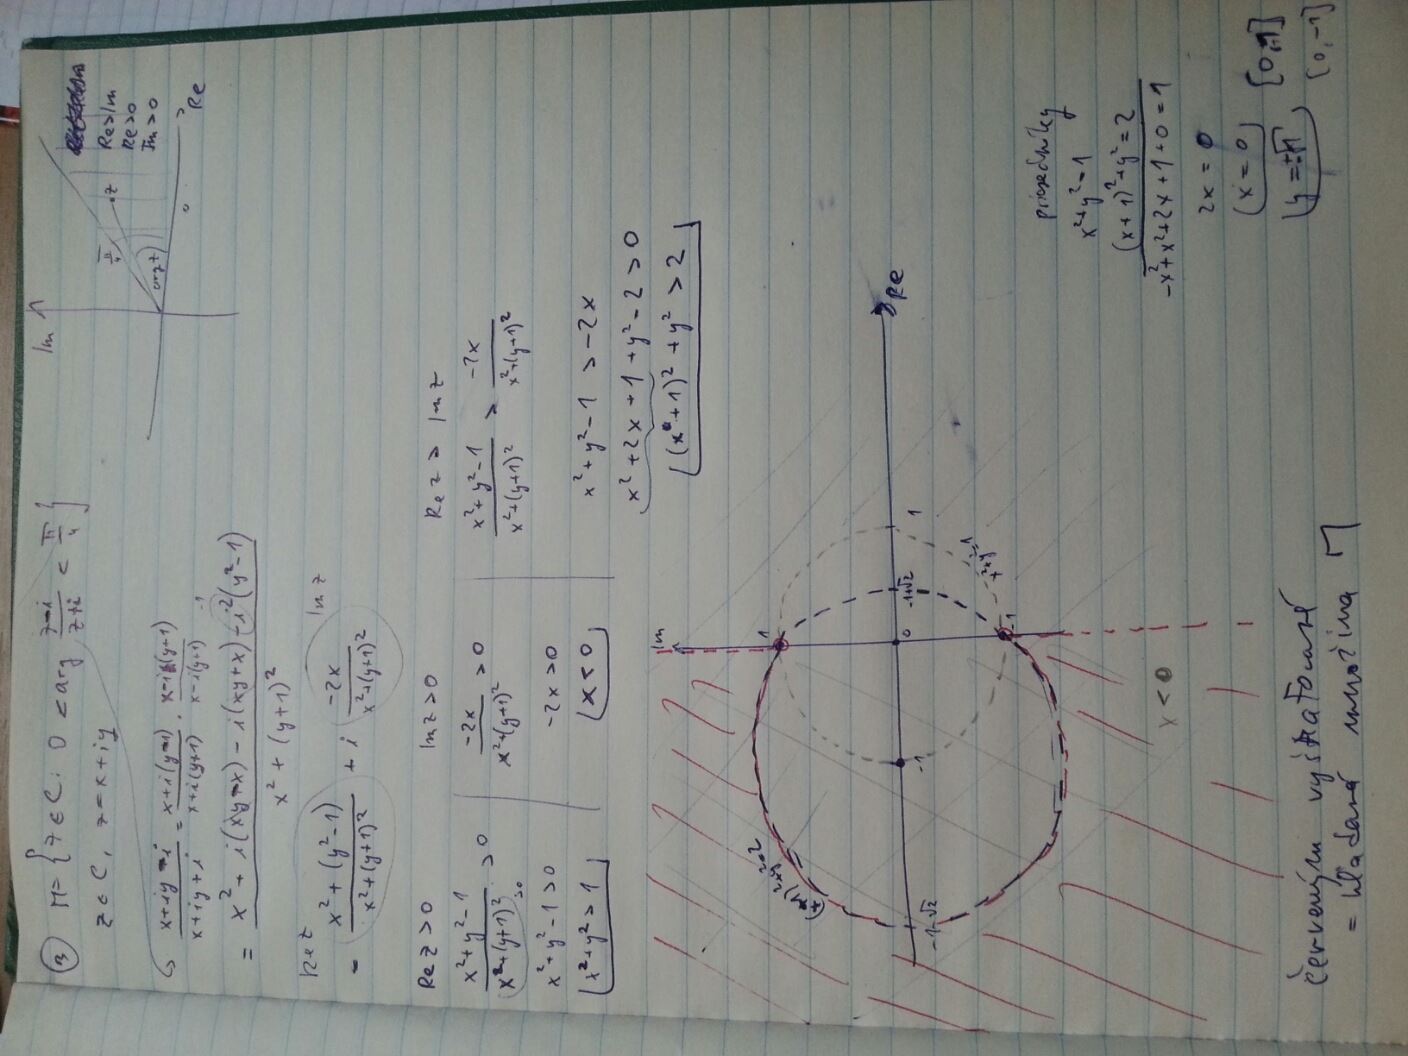 3) M = { z ∈ C : 0 < arg (z-i)/(z+i) < π/4 }
z ∈ C, z = x+iy
Im
π/4
z
arg z
Re>Im
Re>0
Im>0
Re
(x+iy-i)/(x+iy+i) = (x+i(y-1))/(x+i(y+1)) · (x-i(y+1))/(x-i(y+1))
= (x² + i(xy-x) - i(xy+x) - i²(y²-1))/(x² + (y+1)²)
-1
Re z
Im z
= (x² + (y²-1))/(x²+(y+1)²) + i (-2x)/(x²+(y+1)²)
Re z > 0
(x²+y²-1)/(x²+(y+1)²) > 0
>0
x²+y²-1 > 0
x²+y² > 1
Im z > 0
(-2x)/(x²+(y+1)²) > 0
-2x > 0
x < 0
Re z > Im z
(x²+y²-1)/(x²+(y+1)²) > (-2x)/(x²+(y+1)²)
x²+y²-1 > -2x
x²+2x+1+y²-2 > 0
(x+1)²+y² > 2
Im
(x+1)²+y²=2
1
-1-√2
-1
0
-1+√2
1
Re
-1
x²+y²=1
x < 0
priesečníky
x²+y²=1
(x+1)²+y²=2
-x²+x²+2x+1+0=1
2x = 0
x = 0
y = ±√1
[0,1]
[0,-1]
červeným vyšrafované
= hľadaná množina M